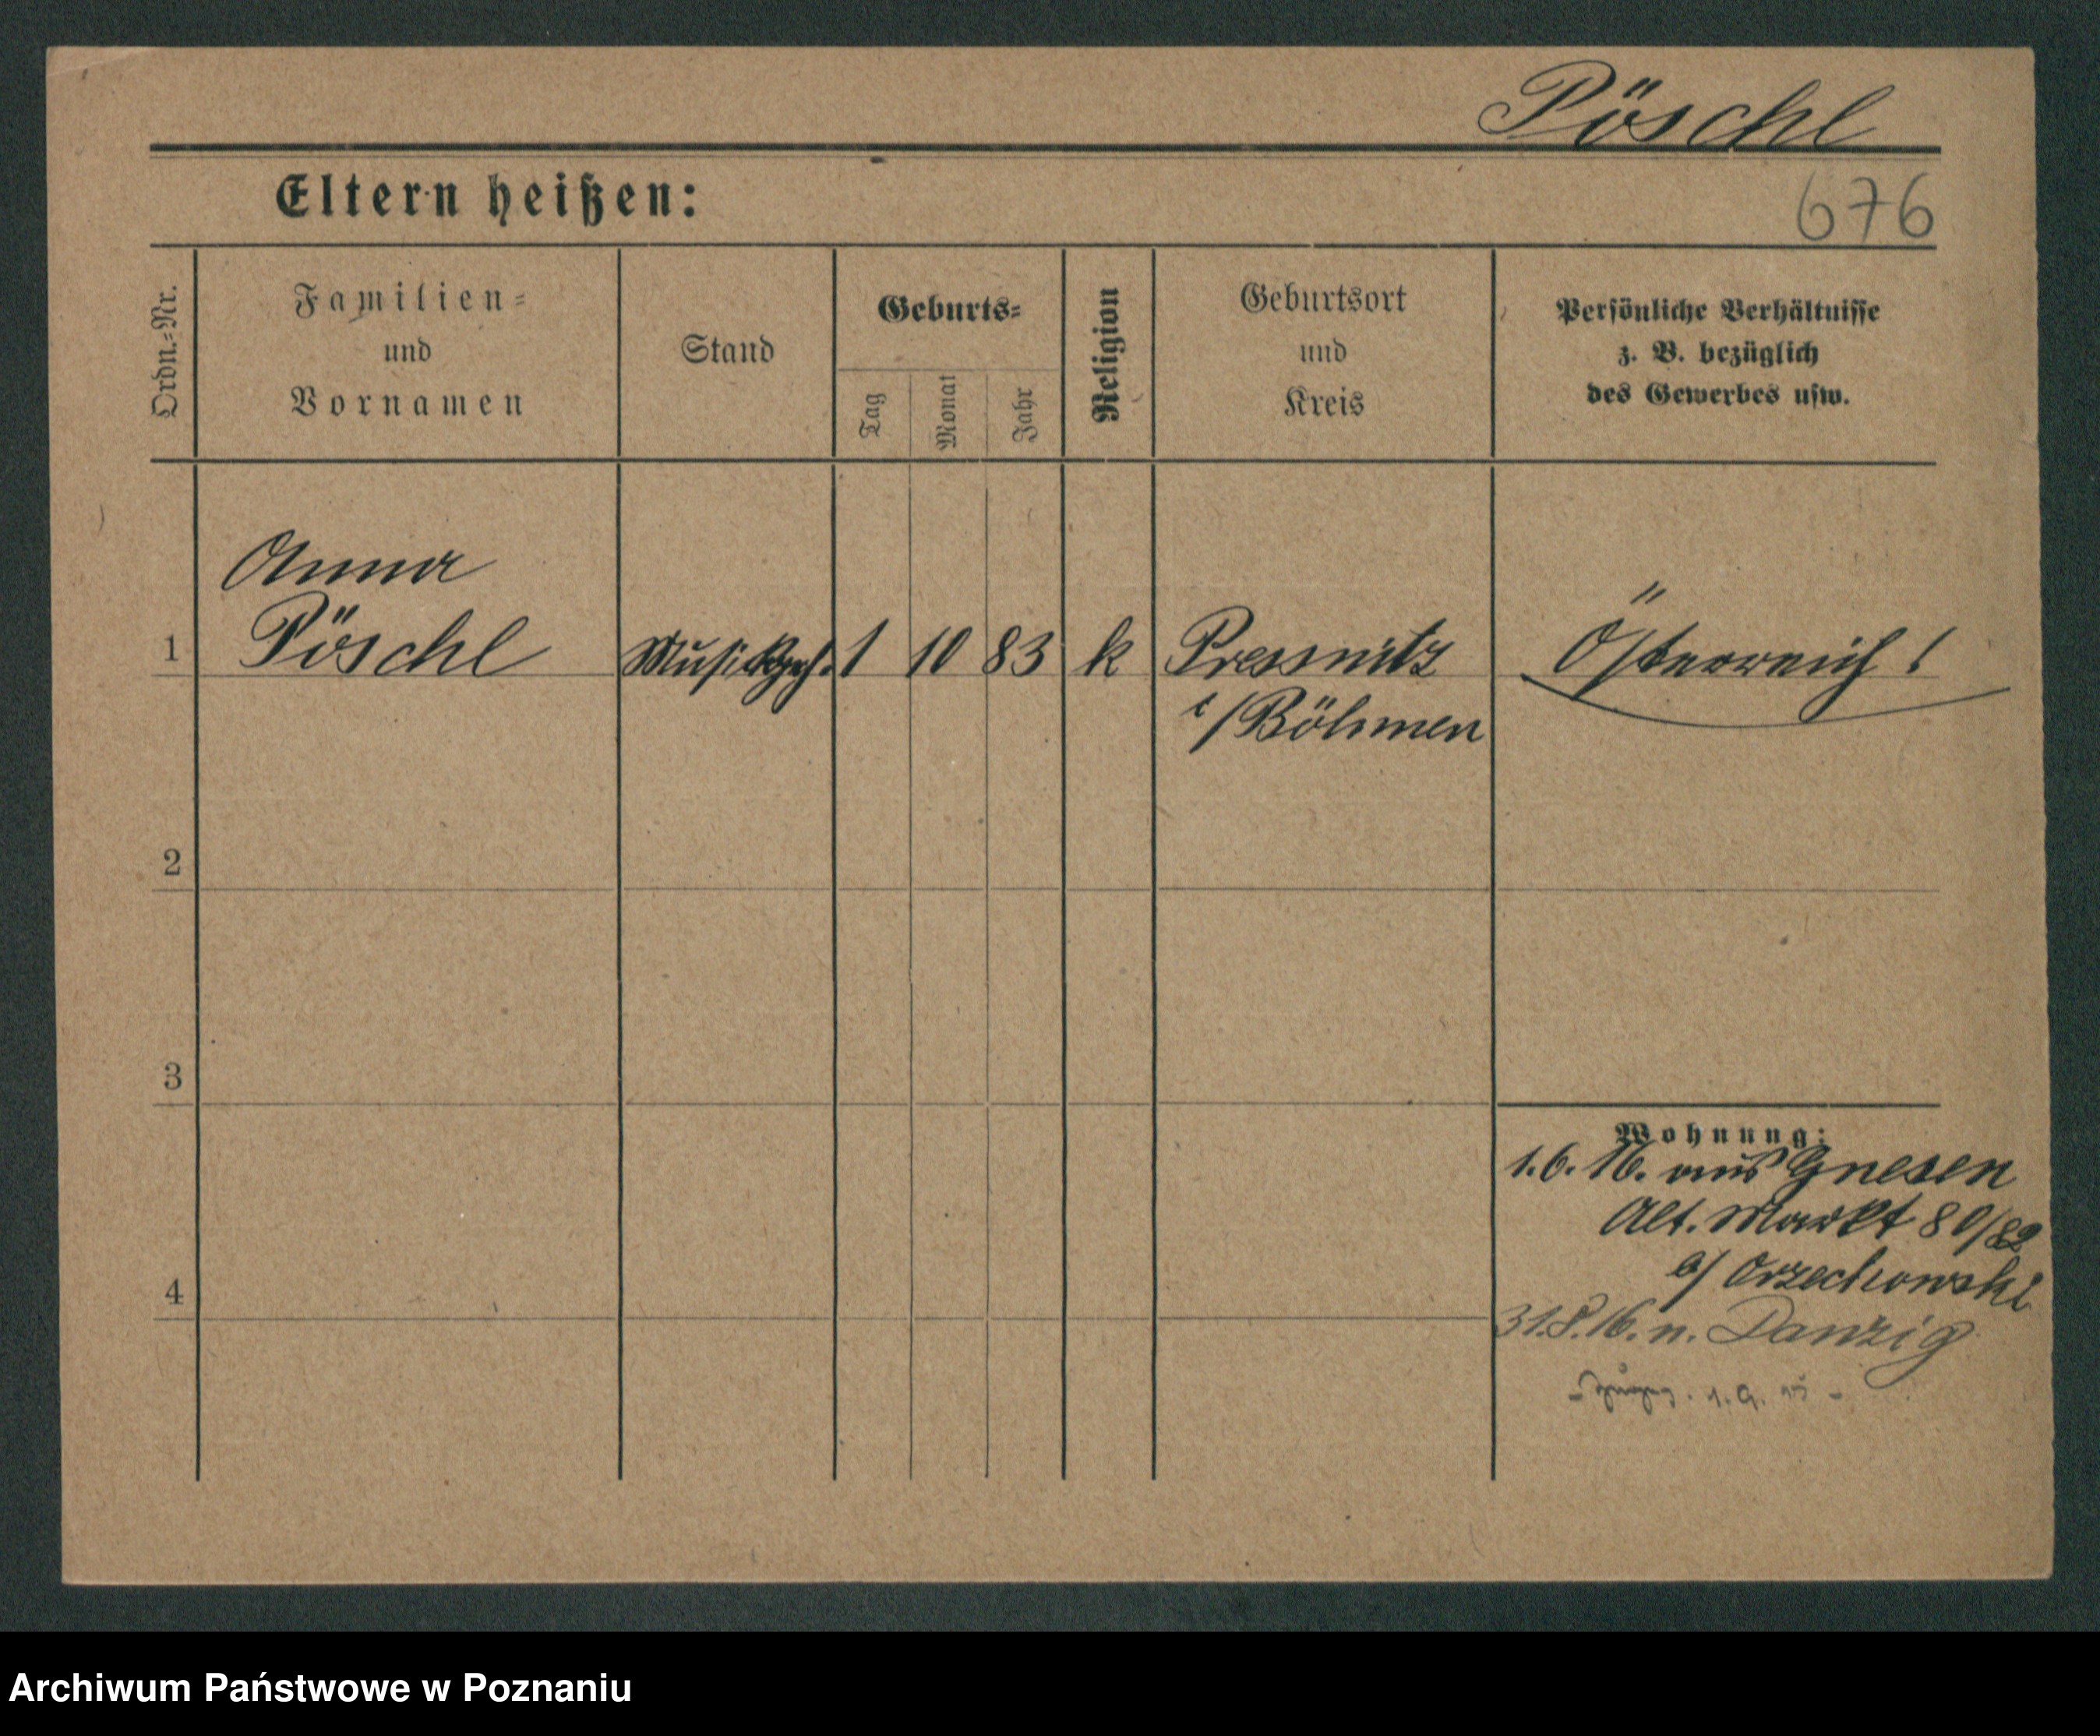 Pöschl
Eltern heißen:
676
Ordn.=Nr.
Familien=
und
Vornamen
Stand
Geburts=
Tag
Monat
Jahr
Religion
Geburtsort
und
Kreis
Persönliche Verhältnisse
z. B. bezüglich
des Gewerbes usw.
Anna
1 Pöschl Musikgeh. 1 10 83 k Pressnitz Österreich!
i/Böhmen
2
3
Wohnung:
1.6.16. aus Gnesen
Alt. Markt 80/82
b/ Orzechowski
4
31.8.16. n. Danzig
1.9.
Archiwum Państwowe w Poznaniu